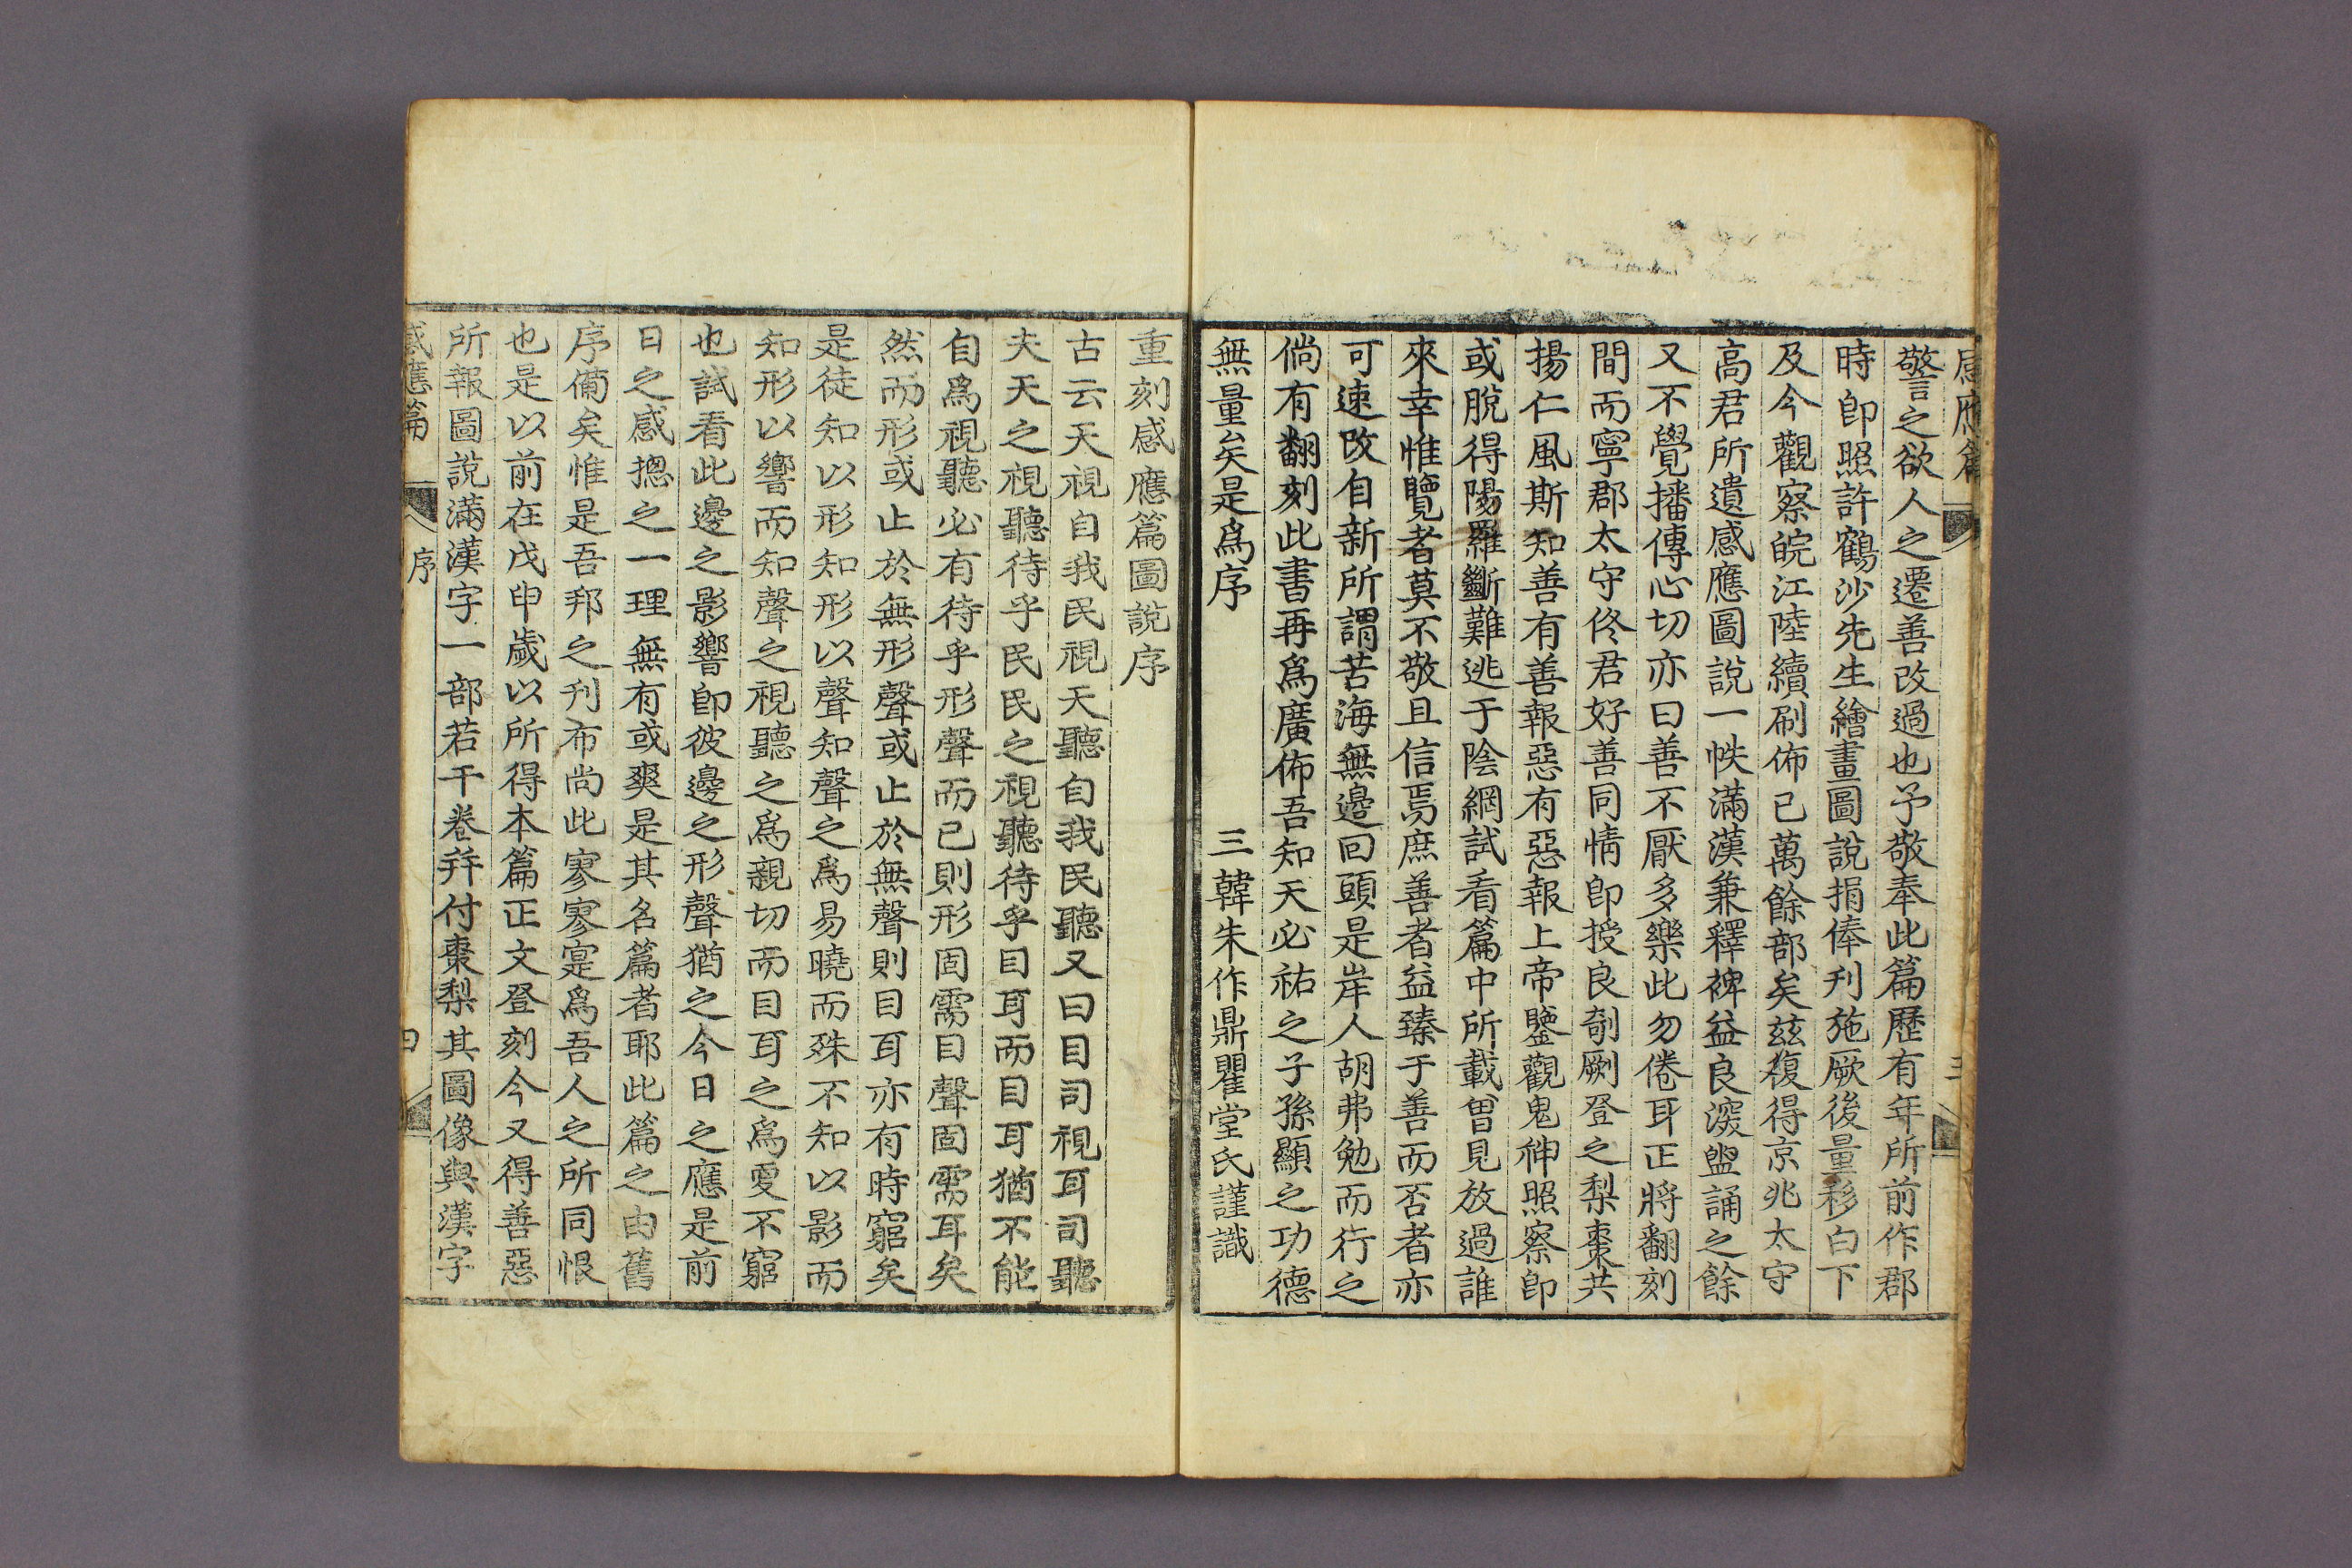 感應篇 三
警之欲人之遷善改過也予敬奉此篇歷有年所前作郡
時卽照許鶴沙先生繪畫圖說捐俸刋施厥後量移白下
及今觀察皖江陸續刷佈已萬餘部矣玆復得京兆太守
高君所遺感應圖說一帙滿漢兼釋裨益良深盥誦之餘
又不覺播傳心切亦曰善不厭多樂此勿倦耳正將翻刻
間而寧郡太守佟君好善同情卽授良剞劂登之梨棗共
揚仁風斯知善有善報惡有惡報上帝鑒觀鬼神照察卽
或脫得陽羅斷難逃于陰網試看篇中所載曾見放過誰
來幸惟覽者莫不敬且信焉庶善者益臻于善而否者亦
可速改自新所謂苦海無邊回頭是岸人胡弗勉而行之
倘有翻刻此書再爲廣佈吾知天必祐之子孫顯之功德
無量矣是爲序 三韓朱作鼎瞿堂氏謹識
重刻感應篇圖說序
古云天視自我民視天聽自我民聽又曰目司視耳司聽
夫天之視聽待乎民民之視聽待乎目耳而目耳猶不能
自爲視聽必有待乎形聲而已則形固需目聲固需耳矣
然而形或止於無形聲或止於無聲則目耳亦有時窮矣
是徒知以形知形以聲知聲之爲易曉而殊不知以影而
知形以響而知聲之視聽之爲親切而目耳之爲更不窮
也試看此邊之影響卽彼邊之形聲猶之今日之應是前
日之感摠之一理無有或爽是其名篇者耶此篇之由舊
序備矣惟是吾邦之刋布尚此寥寥寔爲吾人之所同恨
也是以前在戊申歲以所得本篇正文登刻今又得善惡
所報圖說滿漢字一部若干卷幷付棗梨其圖像與漢字
感應篇 序 四